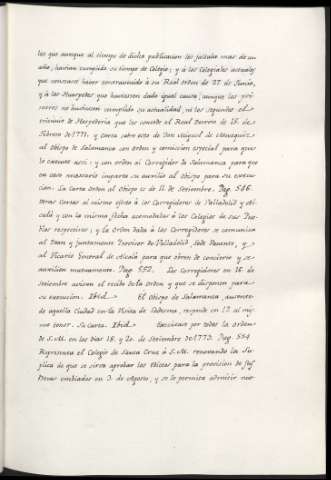 los que aunque al tiempo de dicha publicacion les faltaba mas de un
año, havian cumplido su tiempo de Colegio; y à los Colegiales actuales
que constase haver contravenido à su Real orden de 27 de Junio,
y à los Huespedes que huviesen dado igual causa; aunque los pri-
meros no huviesen cumplido su actualidad, ni los segundos el
trienio de Hospederia que les concede el Real Decreto de 15 de
Febrero de 1771, y Carta sobre esto de Don Miguel de Muzquiz
al Obispo de Salamanca con orden y comision especial para que
lo execute assi: y con orden al Corregidor de Salamanca para que
en caso necesario imparta su auxilio al Obispo para su execu-
cion. La Carta Orden al Obispo es de 11 de Setiembre. Pag. 546.
Otras Cartas al mismo efeto à los Corregidores de Valladolid y Al-
calà y con la misma fecha acomodadas à los Colegios de sus Pue-
blos respective; y la Orden dada à los Corregidores se comunica
al Dean y juntamente Provisor de Valladolid, Sede Vacante, y
al Vicario General de Alcalà para que obren de concierto y se
auxilien mutuamente. Pag. 552. Los Corregidores en 16 de
Setiembre avisan el recibo de la Orden y que se disponen para
su execucion. Ibid. El Obispo de Salamanca, ausente
de aquella Ciudad en la Visita de Ledesma, responde en 17 al mis-
mo tenor. Su Carta. Ibid. Executase por todos la orden
de S. M. en los dias 18, y 20 de Setiembre de 1773. Pag. 554
Representa el Colegio de Santa Cruz à S. M. renovando la Su-
plica de que se sirva aprobar los Edictos para la provision de sus
Becas embiados en 3. de Agosto, y se le permita admitir nue-